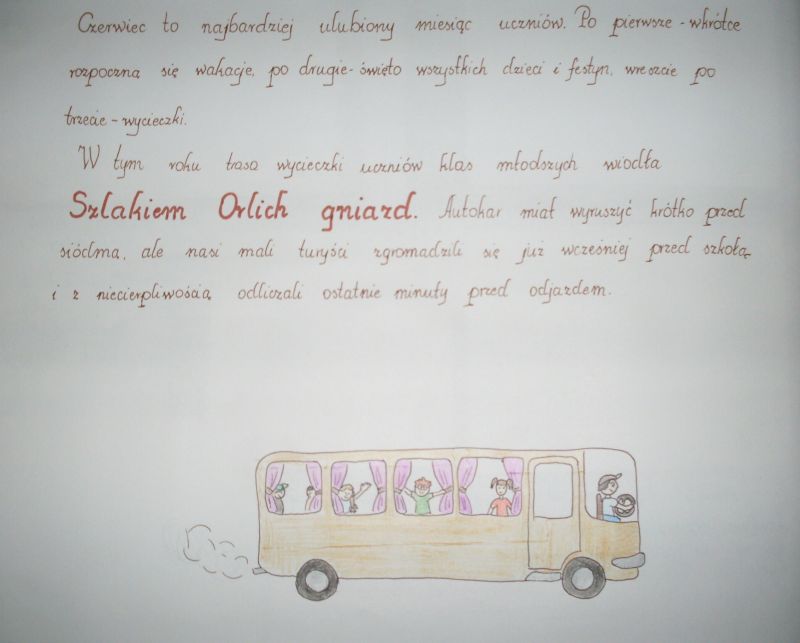 Czerwiec to najbardziej ulubiony miesiąc uczniów. Po pierwsze - wkrótce
rozpoczną się wakacje, po drugie - święto wszystkich dzieci i festyn, wreszcie po
trzecie - wycieczki.
W tym roku trasa wycieczki uczniów klas młodszych wiodła
Szlakiem Orlich gniazd. Autokar miał wyruszyć krótko przed
siódmą, ale nasi mali turyści zgromadzili się już wcześniej przed szkołą
i z niecierpliwością odliczali ostatnie minuty przed odjazdem.